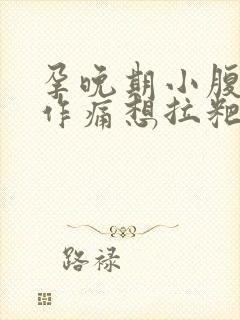 孕晚期小腹
作痛想拉粑
路禄